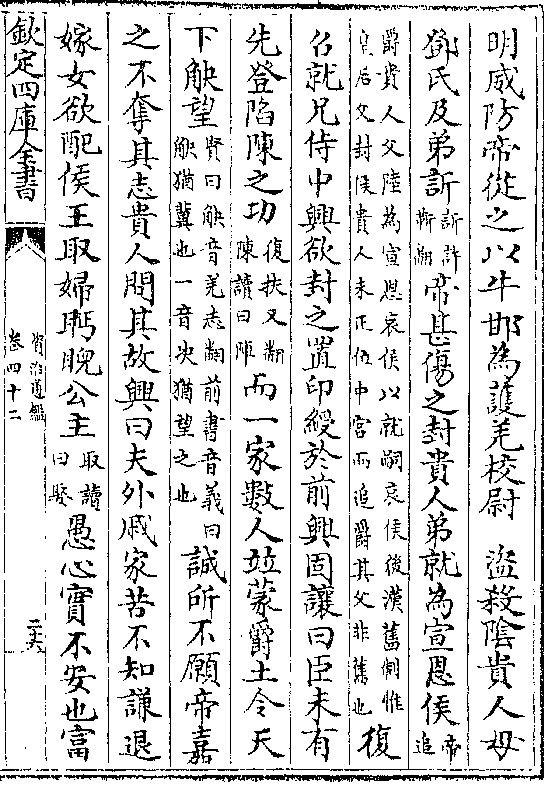 明威防帝從之以牛邯為護羌校尉　盜殺陰貴人母
鄧氏及弟訢訢許斬翻帝甚傷之封貴人弟就為宣恩侯帝追
爵貴人父陸為宣恩哀侯以就嗣哀侯後漢舊制惟皇后父封侯貴人未正位中宮而追爵其父非舊也復
召就兄侍中興欲封之置印綬於前興固讓曰臣未有
先登陷陳之功復扶又翻陳讀曰陣而一家數人竝蒙爵土令天
下觖望賢曰觖音羌志翻前書音義曰觖猶冀也一音决猶望之也誠所不願帝嘉
之不奪其志貴人問其故興曰夫外戚家苦不知謙退
嫁女欲配侯王取婦眄睨公主取讀曰娶愚心實不安也富
欽定四庫全書
資治通鑑
卷四十二
二六